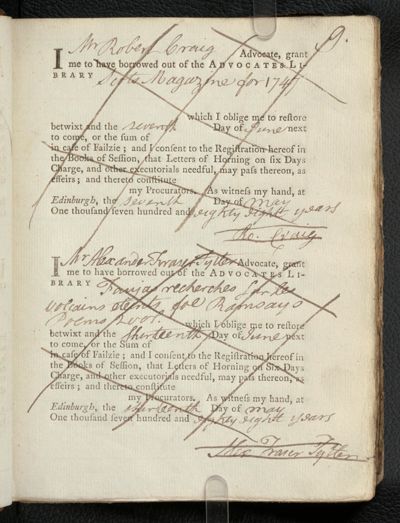 9.
I Mr Robert Craig Advocate, grant
me to have borrowed out of the ADVOCATES LI-
BRARY Scots Magazine for 1747
which I oblige me to restore
betwixt and the seventh Day of June next
to come, or the sum of
in case of Failzie; and I consent to the Registration hereof in
the Books of Session, that Letters of Horning on six Days
Charge, and other executorials needful, may pass thereon, as
effeirs; and thereto constitute
my Procurators. As witness my hand, at
Edinburgh, the seventh Day of May
One thousand seven hundred and eighty eight years
Ro. Craig
I Mr Alexander Fraser Tytler Advocate, grant
me to have borrowed out of the ADVOCATES LI-
BRARY recherches sur les
volcains Ramsays
Poems
which I oblige me to restore
betwixt and the thirteenth Day of June next
to come, or the Sum of
in case of Failzie; and I consent to the Registration hereof in
the Books of Session, that Letters of Horning on Six Days
Charge, and other executorials needful, may pass thereon, as
effeirs; and thereto constitute
my Procurators. As witness my hand, at
Edinburgh, the thirteenth Day of May
One thousand seven hundred and eighty eight years
Alex Fraser Tytler